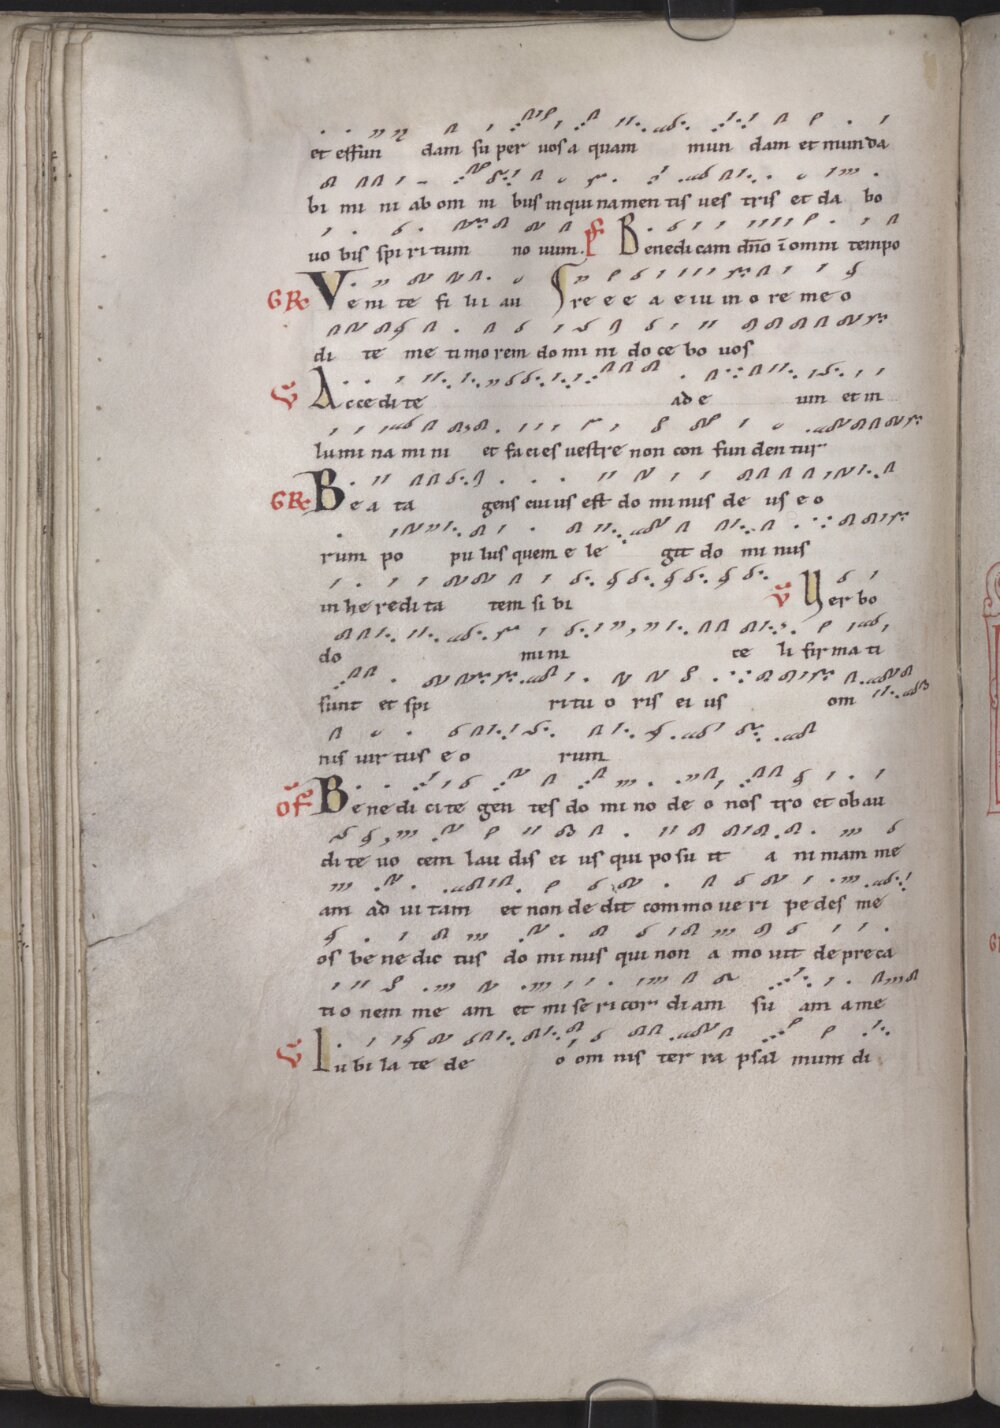 et effun dam su per vos a quam mun dam et mun da
bi mi ni ab om ni bus in qui na men tis ves tris et da bo
vo bis spi ri tum no vum. Pſ Benedicam dn̄o ī omni tempo
GR Ve ni te fi lii au re e e a e i u in o re me o
di te me ti mo rem do mi ni do ce bo vos
V̄ Acce di te ad e um et in
lu mi na mi ni et fa cies vestre non con fun den tur
GR Be a ta gens cui us est do mi nus de us e o
rum po pu lus quem e le git do mi nus
in he re di ta tem si bi V̄ Verbo
do mi ni ce li fir ma ti
sunt et spi ri tu o ris ei us om
nis vir tus e o rum
of Be ne di ci te gen tes do mi no de o nos tro et ob au
di te vo cem lau dis ei us qui po su it a ni mam me
am ad vi tam et non de dit com mo ve ri pe des me
os be ne dic tus do mi nus qui non a mo vit de pre ca
ti o nem me am et mi se ri cor di am su am a me
V̄ Iu bi la te de o om nis ter ra psal mum di